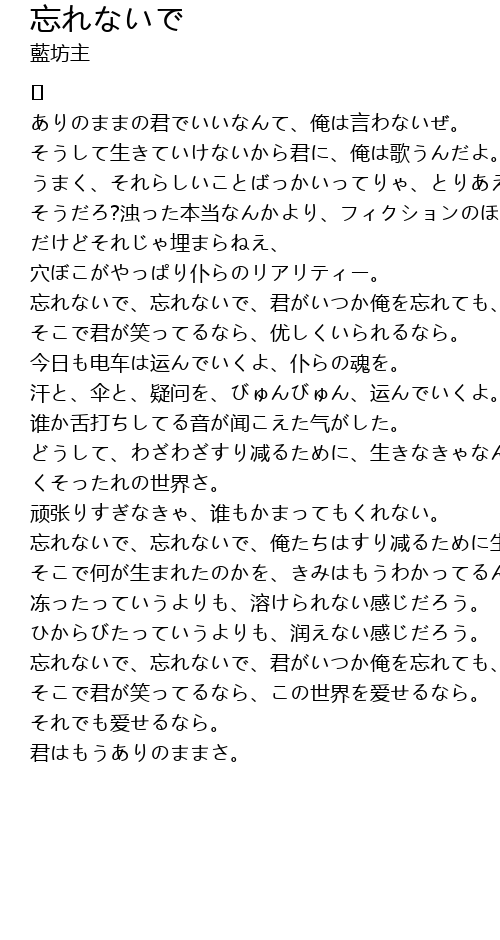 忘れないで
藍坊主
ありのままの君でいいなんて、俺は言わないぜ。
そうして生きていけないから君に、俺は歌うんだよ。
うまく、それらしいことばっかいってりゃ、とりあえ
そうだろ?浊った本当なんかより、フィクションのほ
だけどそれじゃ埋まらねえ、
穴ぼこがやっぱり仆らのリアリティー。
忘れないで、忘れないで、君がいつか俺を忘れても、
そこで君が笑ってるなら、优しくいられるなら。
今日も电车は运んでいくよ、仆らの魂を。
汗と、伞と、疑问を、びゅんびゅん、运んでいくよ。
谁か舌打ちしてる音が闻こえた气がした。
どうして、わざわざすり减るために、生きなきゃなん
くそったれの世界さ。
顽张りすぎなきゃ、谁もかまってもくれない。
忘れないで、忘れないで、俺たちはすり减るために生
そこで何が生まれたのかを、きみはもうわかってるん
冻ったっていうよりも、溶けられない感じだろう。
ひからびたっていうよりも、润えない感じだろう。
忘れないで、忘れないで、君がいつか俺を忘れても、
そこで君が笑ってるなら、この世界を爱せるなら。
それでも爱せるなら。
君はもうありのままさ。